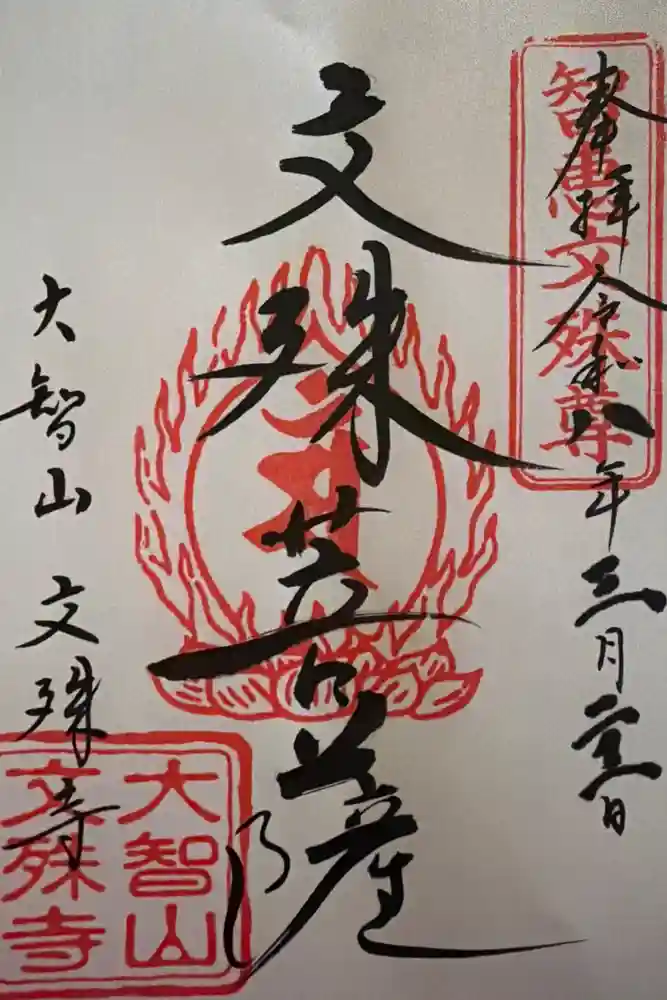 奉拝 令和八年三月二十一日
智恵文殊尊
文殊菩薩
大智山 文殊寺
大智山
文殊寺